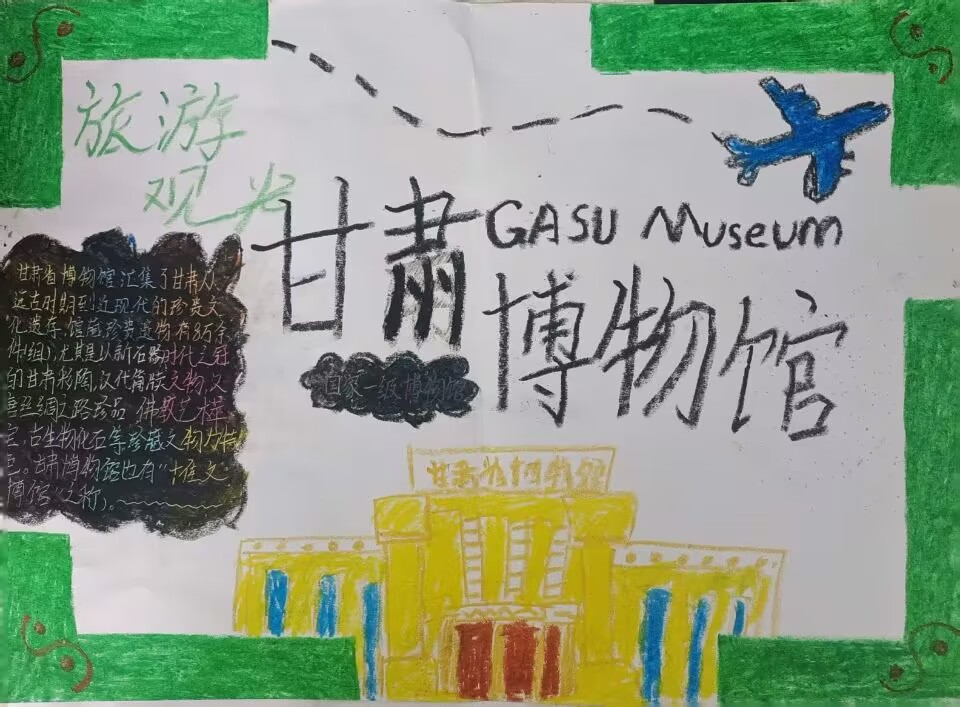 旅游
观光
甘肃
GASU Museum
博物馆
国家一级博物馆
甘肃省博物馆汇集了甘肃从
远古时期到近现代的珍贵文
化遗存,馆藏珍贵遗物有8万余
件(组),尤其是以新石器时代之冠
的甘肃彩陶,汉代简牍文物,汉
唐丝绸之路珍品,佛教艺术
古生物化石等珍藏文物为特
色。甘肃博物馆也有“
博馆”之称)。
甘肃省博物馆